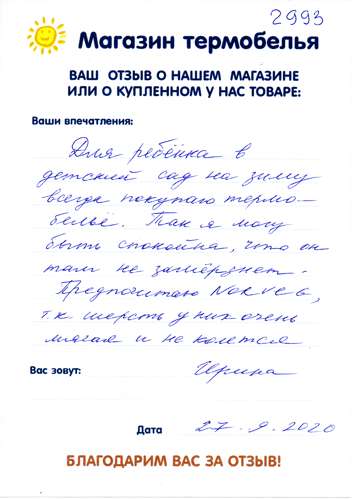 2993
Магазин термобелья
ВАШ ОТЗЫВ О НАШЕМ МАГАЗИНЕ
ИЛИ О КУПЛЕННОМ У НАС ТОВАРЕ:
Ваши впечатления:
Для ребёнка в
детский сад на зиму
всегда покупаю термо-
бельё. Так я могу
быть спокойна, что он
там не замёрзнет.
Предпочитаю Norveg,
т.к шерсть у них очень
мягкая и не колется.
Вас зовут: Ирина
Дата 27.9.2020
БЛАГОДАРИМ ВАС ЗА ОТЗЫВ!